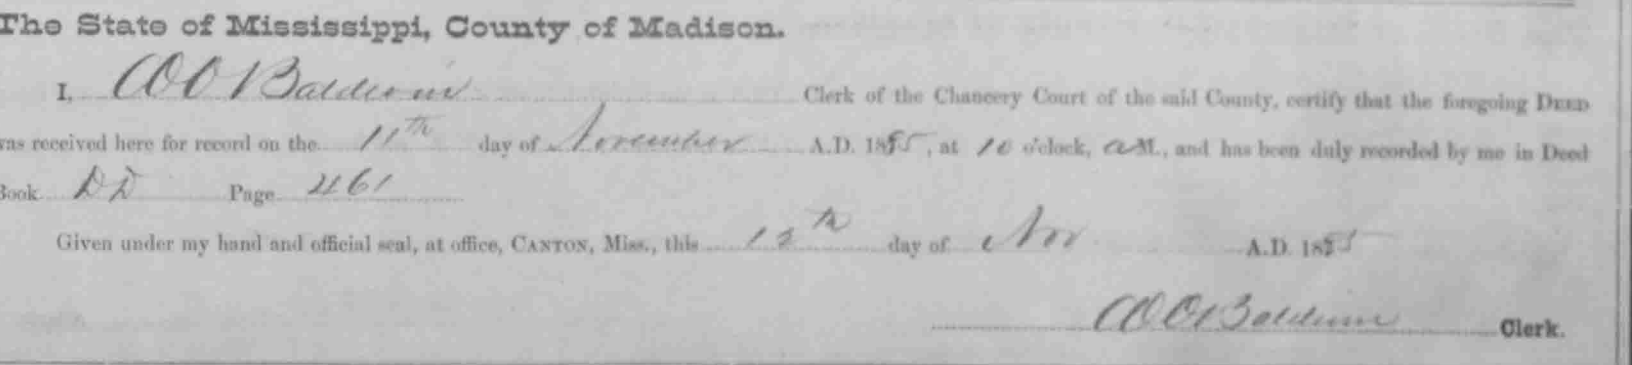 The State of Mississippi, County of Madison.
I, Baldwin Clerk of the Chancery Court of the said County, certify that the foregoing DEED
was received here for record on the 11th day of November A.D. 1885, at 10 o'clock, a M., and has been duly recorded by me in Deed
Book DD Page 461
Given under my hand and official seal, at office, CANTON, Miss., this 12th day of Nov A.D. 1885
Baldwin Clerk.